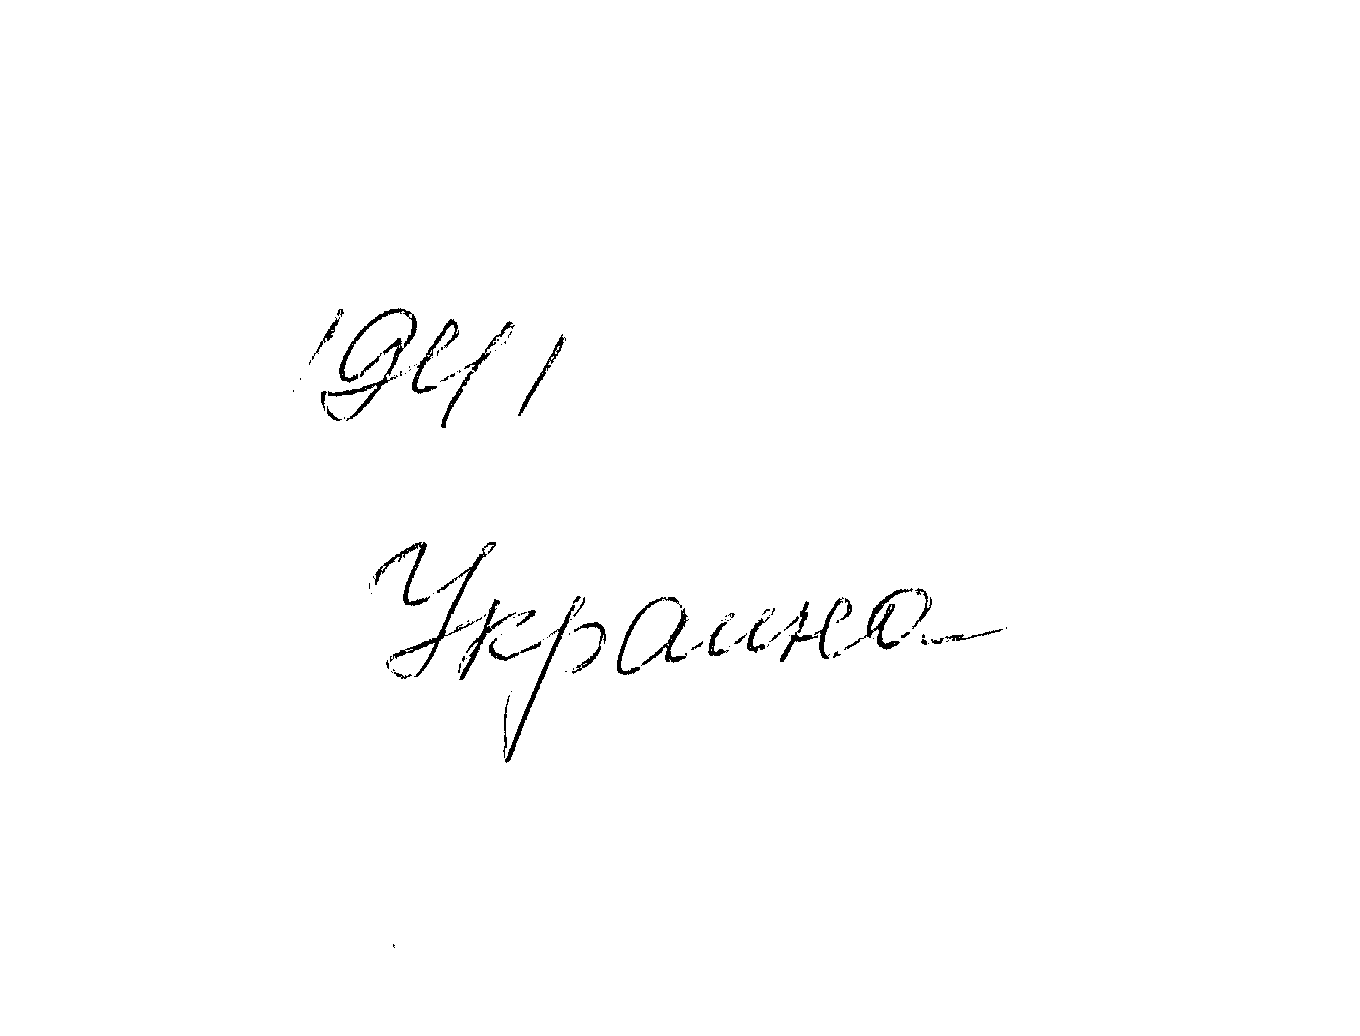 1941
Украина